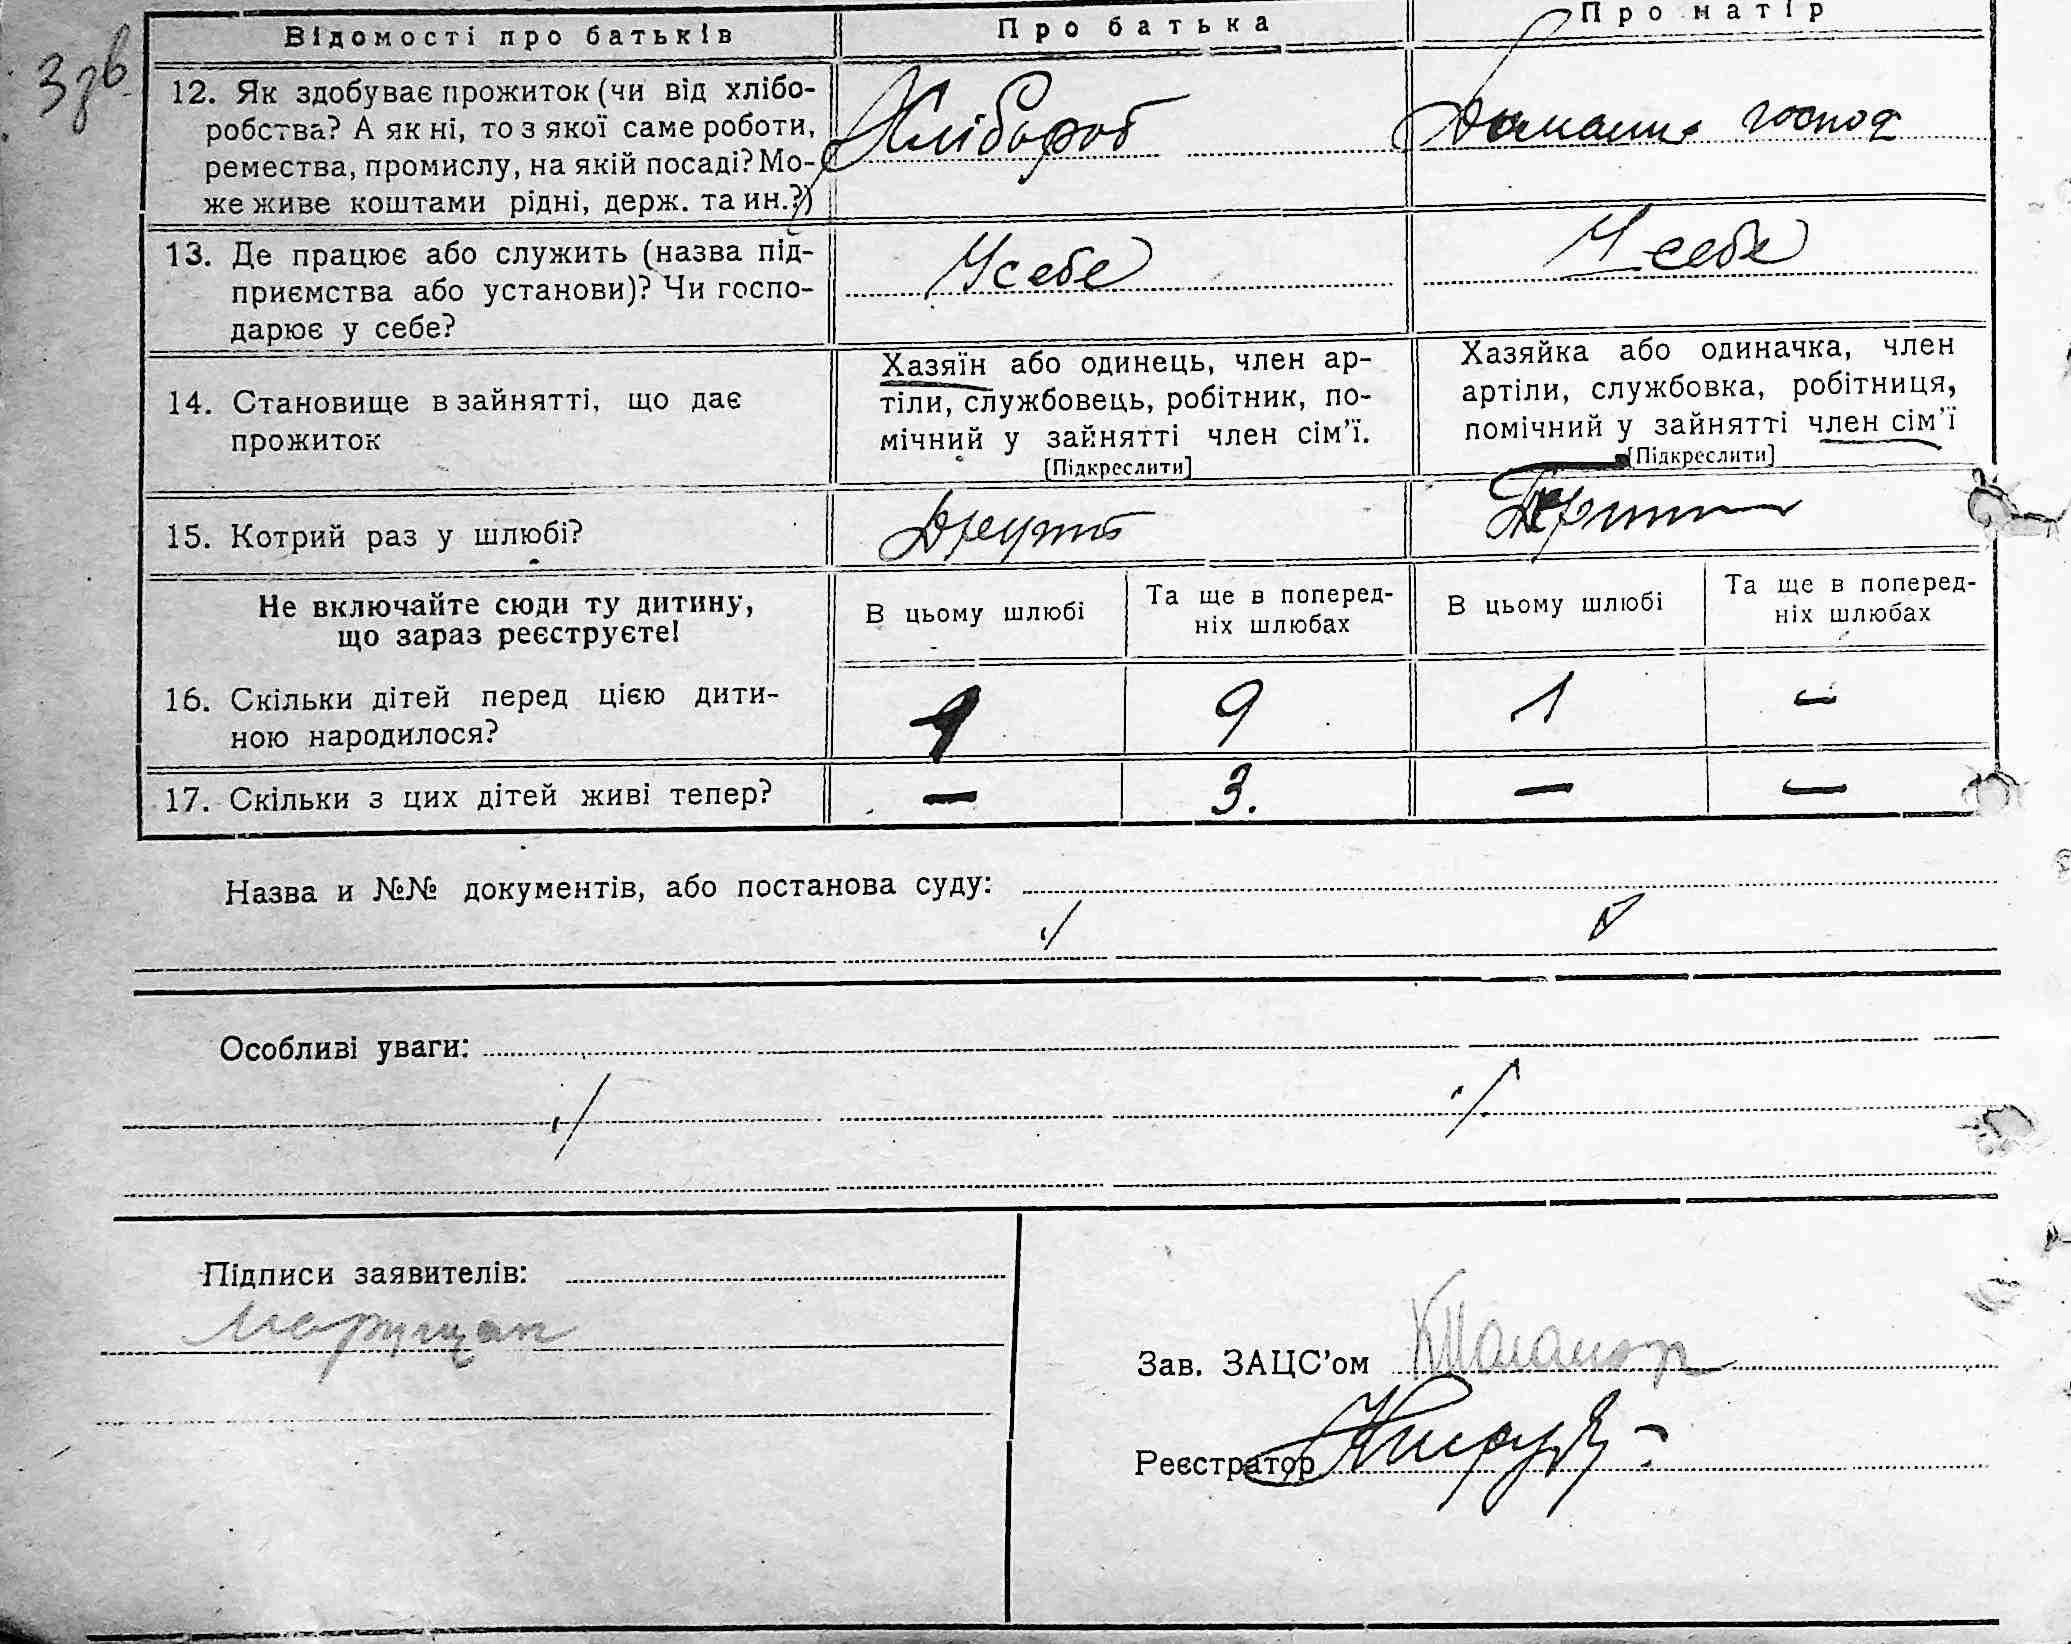 3 зв.
Відомості про батьків Про батька Про матір
12. Як здобуває прожиток (чи від хлібо-
робства? А як ні, то з якої саме роботи,
ремества, промислу, на якій посаді? Мо-
же живе коштами рідні, держ. та ин.?)
Хлібороб
Домашнє господ
13. Де працює або служить (назва під-
приємства або установи)? Чи госпо-
дарює у себе?
У себе
У себе
14. Становище в зайнятті, що дає
прожиток
Хазяїн або одинець, член ар-
тіли, службовець, робітник, по-
мічний у зайнятті член сім’ї.
[Підкреслити]
Хазяйка або одиначка, член
артіли, службовка, робітниця,
помічний у зайнятті член сім’ї
[Підкреслити]
15. Котрий раз у шлюбі?
Не включайте сюди ту дитину,
що зараз реєструєте!
В цьому шлюбі
Та ще в поперед-
ніх шлюбах
В цьому шлюбі
Та ще в поперед-
ніх шлюбах
16. Скільки дітей перед цією дити-
ною народилося?
1 9 1 –
17. Скільки з цих дітей живі тепер?
– 3. – –
Назва и №№ документів, або постанова суду:
Особливі уваги:
Підписи заявителів:
Зав. ЗАЦС’ом
Реєстратор